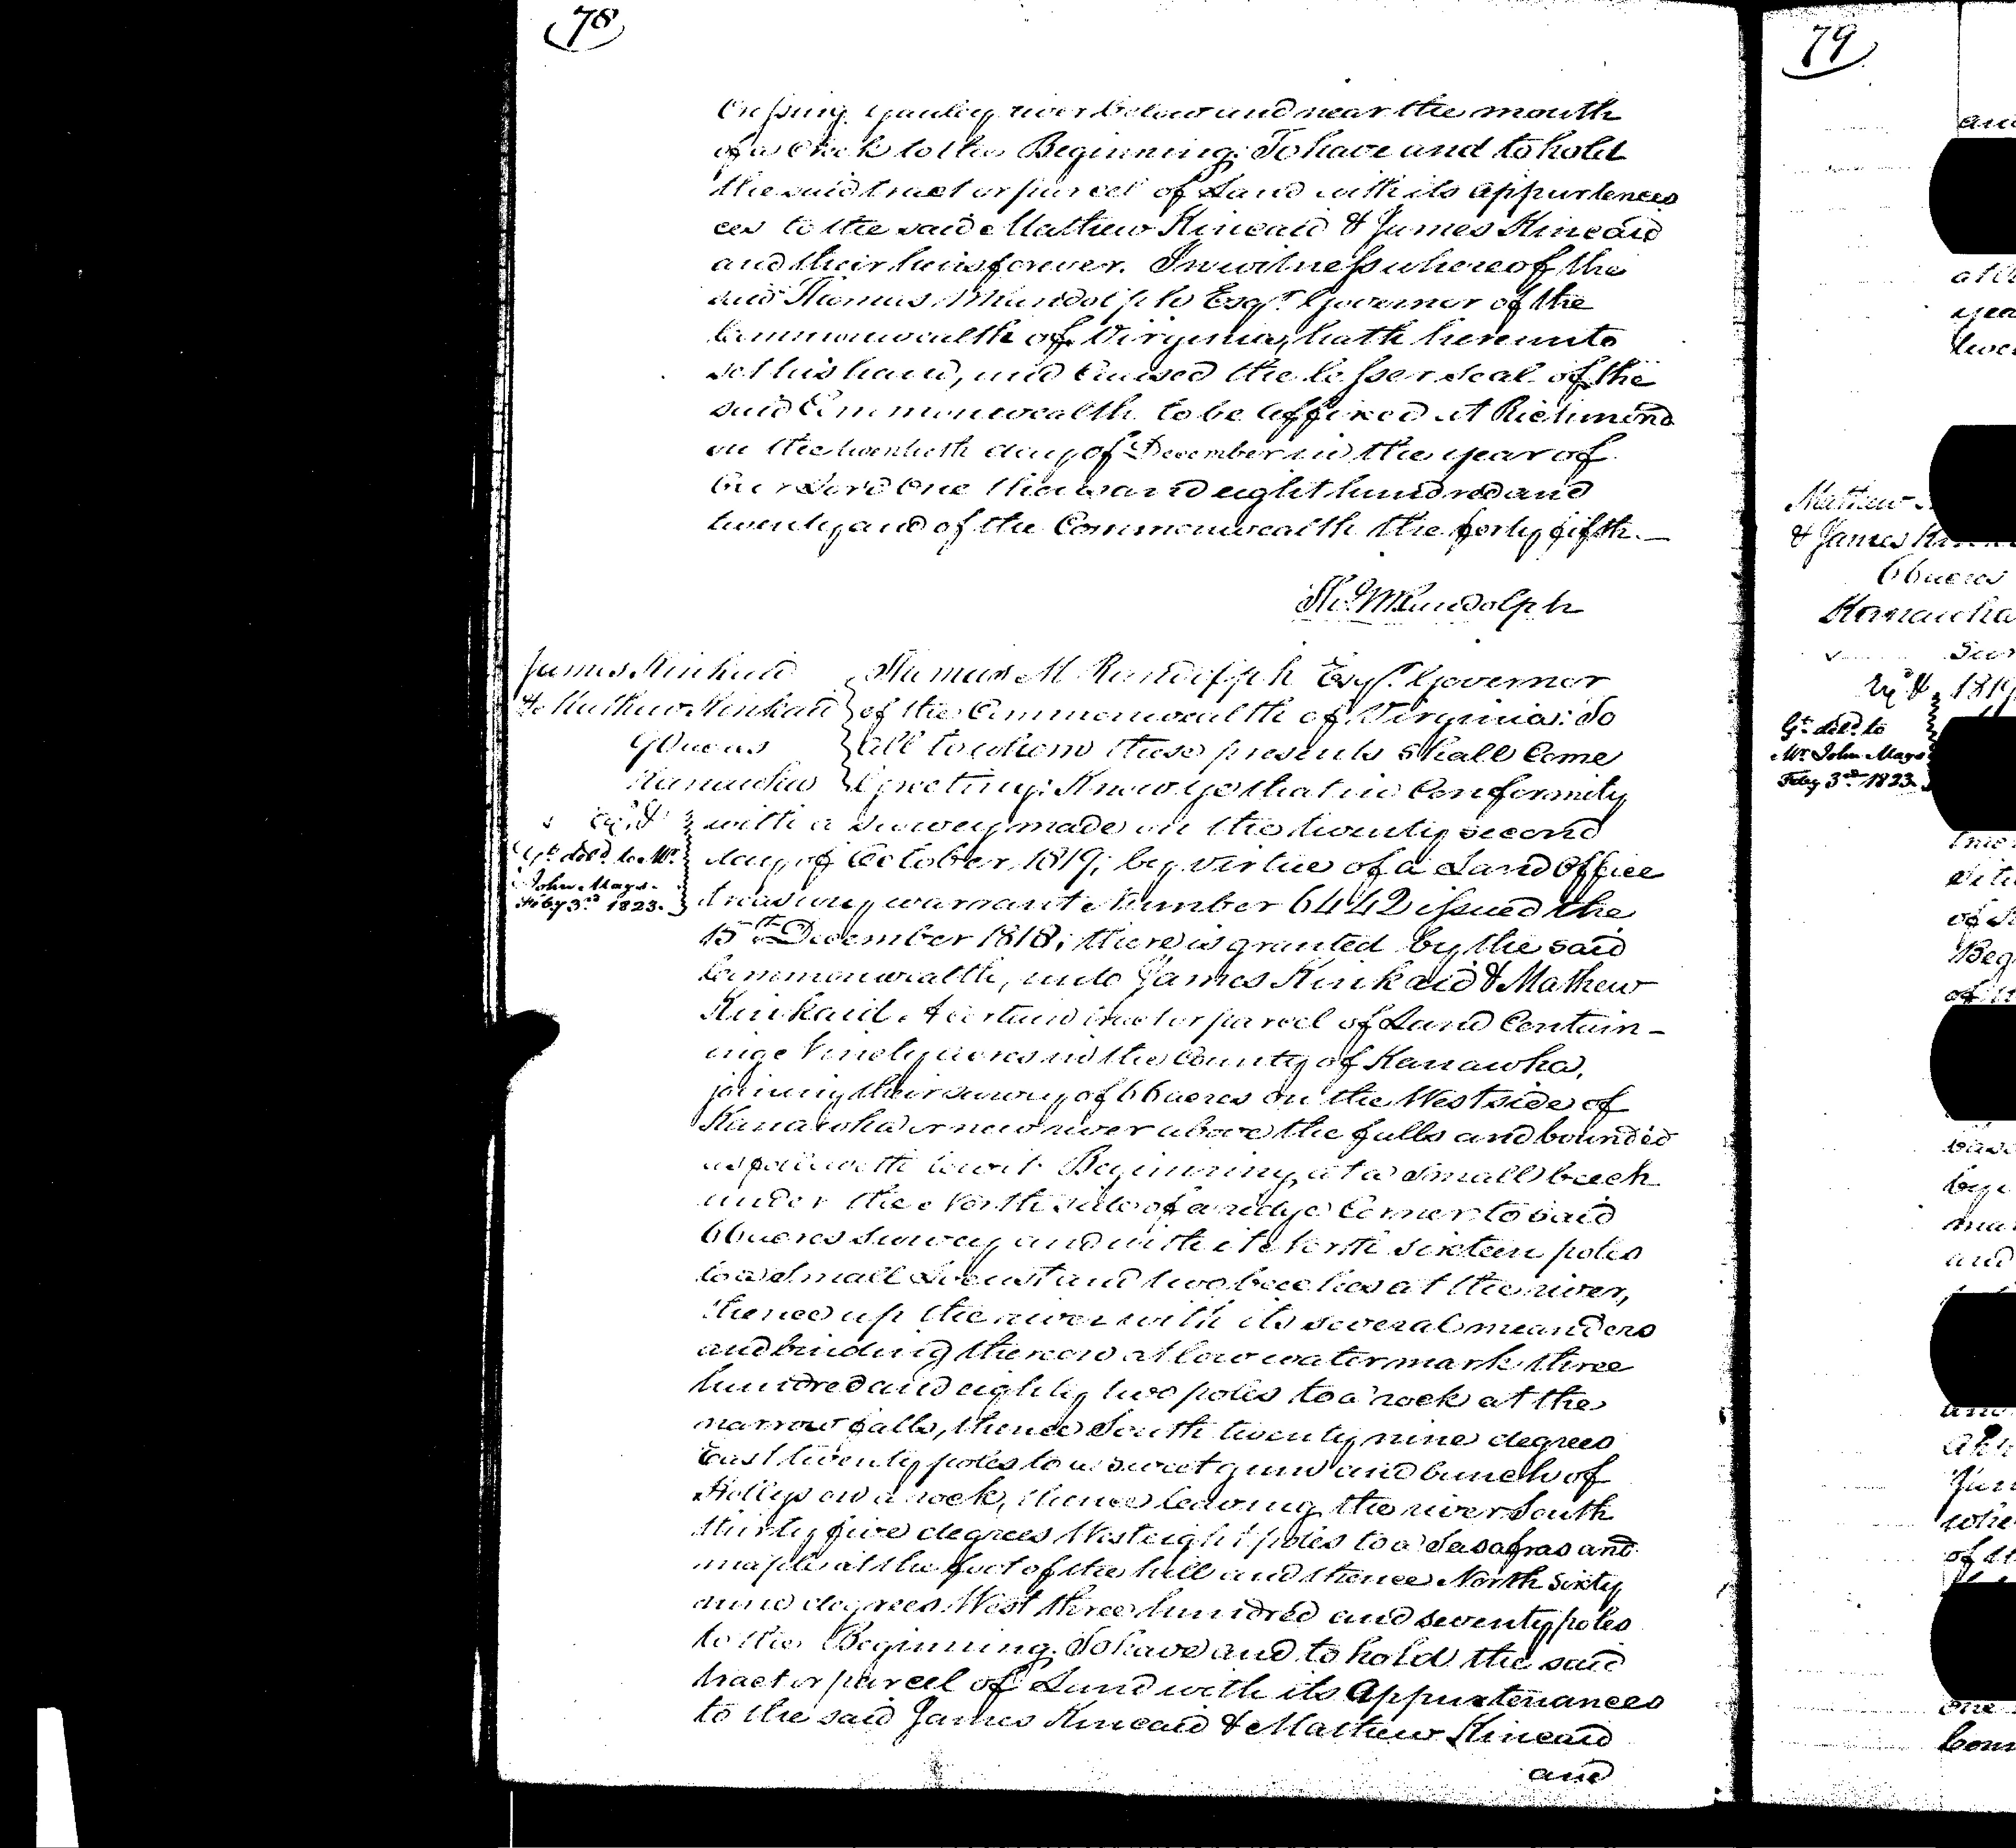 78
Crossing Gauley river below and near the mouth
of a Creek to the Beginning; To have and to hold
the said tract or parcel of Land with its appurtences
ces to the said Mathew Kincaid & James Kincaid
and their heirs forever. In witness whereof the
said Thomas M Randolph Esqr. Governor of the
Commonwealth of Virginia, hath hereunto
set his hand, and Caused the lesser Seal of the
said Commonwealth to be affixed at Richmond
on the twentieth day of December in the year of
Our Lord One thousand eight hundred and
twenty and of the Commonwealth the forty fifth.
Th. M Randolph
James Kinkaid
& Mathew Kinkaid
90 acres
Kanawha
Exd
Gt. deld. to Mr.
John Mays.
Feby 3rd 1823.
Thomas M Randolph Esqr. Governor
of the Commonwealth of Virginia: To
all to whom these presents shall Come
Greeting: Know ye that in Conformity
with a survey made on the twenty second
day of October 1819, by virtue of a Land Office
treasury warrant Number 6442 issued the
15th December 1818; there is granted by the said
Commonwealth, unto James Kinkaid & Mathew
Kinkaid A certain tract or parcel of Land Contain-
ing Ninety acres in the County of Kanawha,
joining their survey of 66 acres on the West side of
Kanawha or new river above the falls and bounded
as followeth towit. Beginning at a small beech
under the North side of a ridge Corner to said
66 acres survey and with it North sixteen poles
to a small Locust and two beeches at the river,
thence up the river with its several meanders
and binding thereon at low water mark three
hundred and eighty two poles to a rock at the
narrow falls, thence South twenty nine degrees
East twenty poles to a sweet gum and bunch of
Hollys on a rock, thence leaving the river South
thirty five degrees West eight poles to a Sasafras and
maple at the foot of the hill and thence North sixty
nine degrees West three hundred and seventy poles
to the Beginning; To have and to hold the said
tract or parcel of Land with its Appurtenances
to the said James Kincaid & Mathew Kincaid
and
79
Mathew
& James
66 acres
Kanawha
Exd
1819
Gt. deld. to
Mr. John Mays
Feby 3rd 1823.